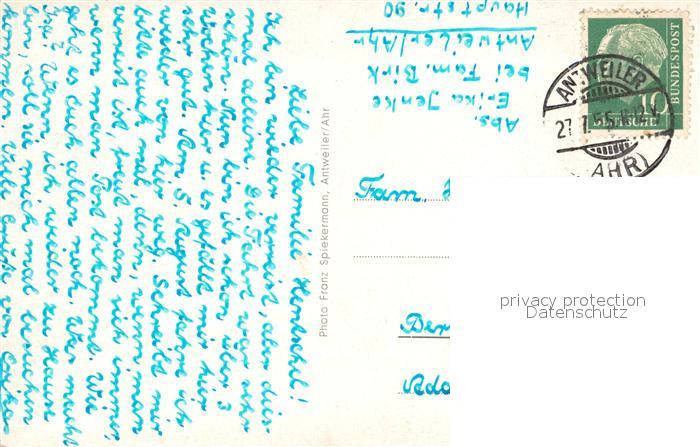 Liebe Familie Herschel!
Ich bin wieder verreist, aber dies-
mal allein. Die Fahrt war sehr
schön. Nun bin ich schon über 3
Wochen hier u. es gefällt mir hier
sehr gut. Am 5. August fahre ich
wieder von hier weg. Schreibt mir
bitte auch mal, denn, wenn man
verreist ist, freut man sich immer,
wenn man Post bekommt. Wie
geht es Euch allen noch. Was macht
Ihr? Wenn ich wieder zu Haus
bin, müßt Ihr mich mal besuchen
kommen. Viele Grüße von Erika
Photo Franz Spiekermann, Antweiler/Ahr
Abs.
Erika Jenke
bei Fam. Birk
Antweiler/Ahr
Hauptstr. 90
DEUTSCHE
BUNDESPOST
10
ANTWEILER
27.7.
(AHR)
Fam.
Ber
privacy protection
Datenschutz